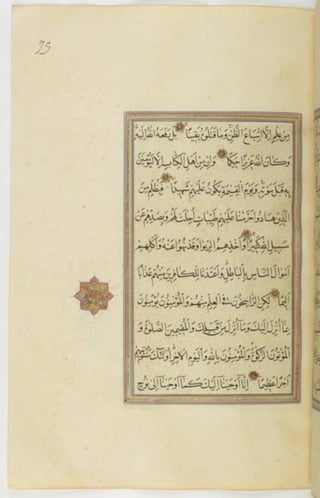 73
مِنْ عِلْمٍ اِلَّا اتِّبَاعَ الظَّنِّ وَمَا قَتَلُوهُ يَقِينًا بَلْ رَفَعَهُ اللّٰهُ اِلَيْهِ
وَكَانَ اللّٰهُ عَزِيزًا حَكِيمًا وَاِنْ مِنْ اَهْلِ الْكِتَابِ اِلَّا لَيُؤْمِنَنَّ
بِهِ قَبْلَ مَوْتِهِ وَيَوْمَ الْقِيٰمَةِ يَكُونُ عَلَيْهِمْ شَهِيدًا فَبِظُلْمٍ مِنَ
الَّذِينَ هَادُوا حَرَّمْنَا عَلَيْهِمْ طَيِّبَاتٍ اُحِلَّتْ لَهُمْ وَبِصَدِّهِمْ عَنْ
سَبِيلِ اللّٰهِ كَثِيرًا وَاَخْذِهِمُ الرِّبٰوا وَقَدْ نُهُوا عَنْهُ وَاَكْلِهِمْ
اَمْوَالَ النَّاسِ بِالْبَاطِلِ وَاَعْتَدْنَا لِلْكَافِرِينَ مِنْهُمْ عَذَابًا
اَلِيمًا لٰكِنِ الرَّاسِخُونَ فِي الْعِلْمِ مِنْهُمْ وَالْمُؤْمِنُونَ يُؤْمِنُونَ
بِمَا اُنْزِلَ اِلَيْكَ وَمَا اُنْزِلَ مِنْ قَبْلِكَ وَالْمُقِيمِينَ الصَّلٰوةَ وَ
الْمُؤْتُونَ الزَّكٰوةَ وَالْمُؤْمِنُونَ بِاللّٰهِ وَالْيَوْمِ الْاٰخِرِ اُولٰئِكَ سَنُؤْتِيهِمْ
اَجْرًا عَظِيمًا اِنَّا اَوْحَيْنَا اِلَيْكَ كَمَا اَوْحَيْنَا اِلٰى نُوحٍ